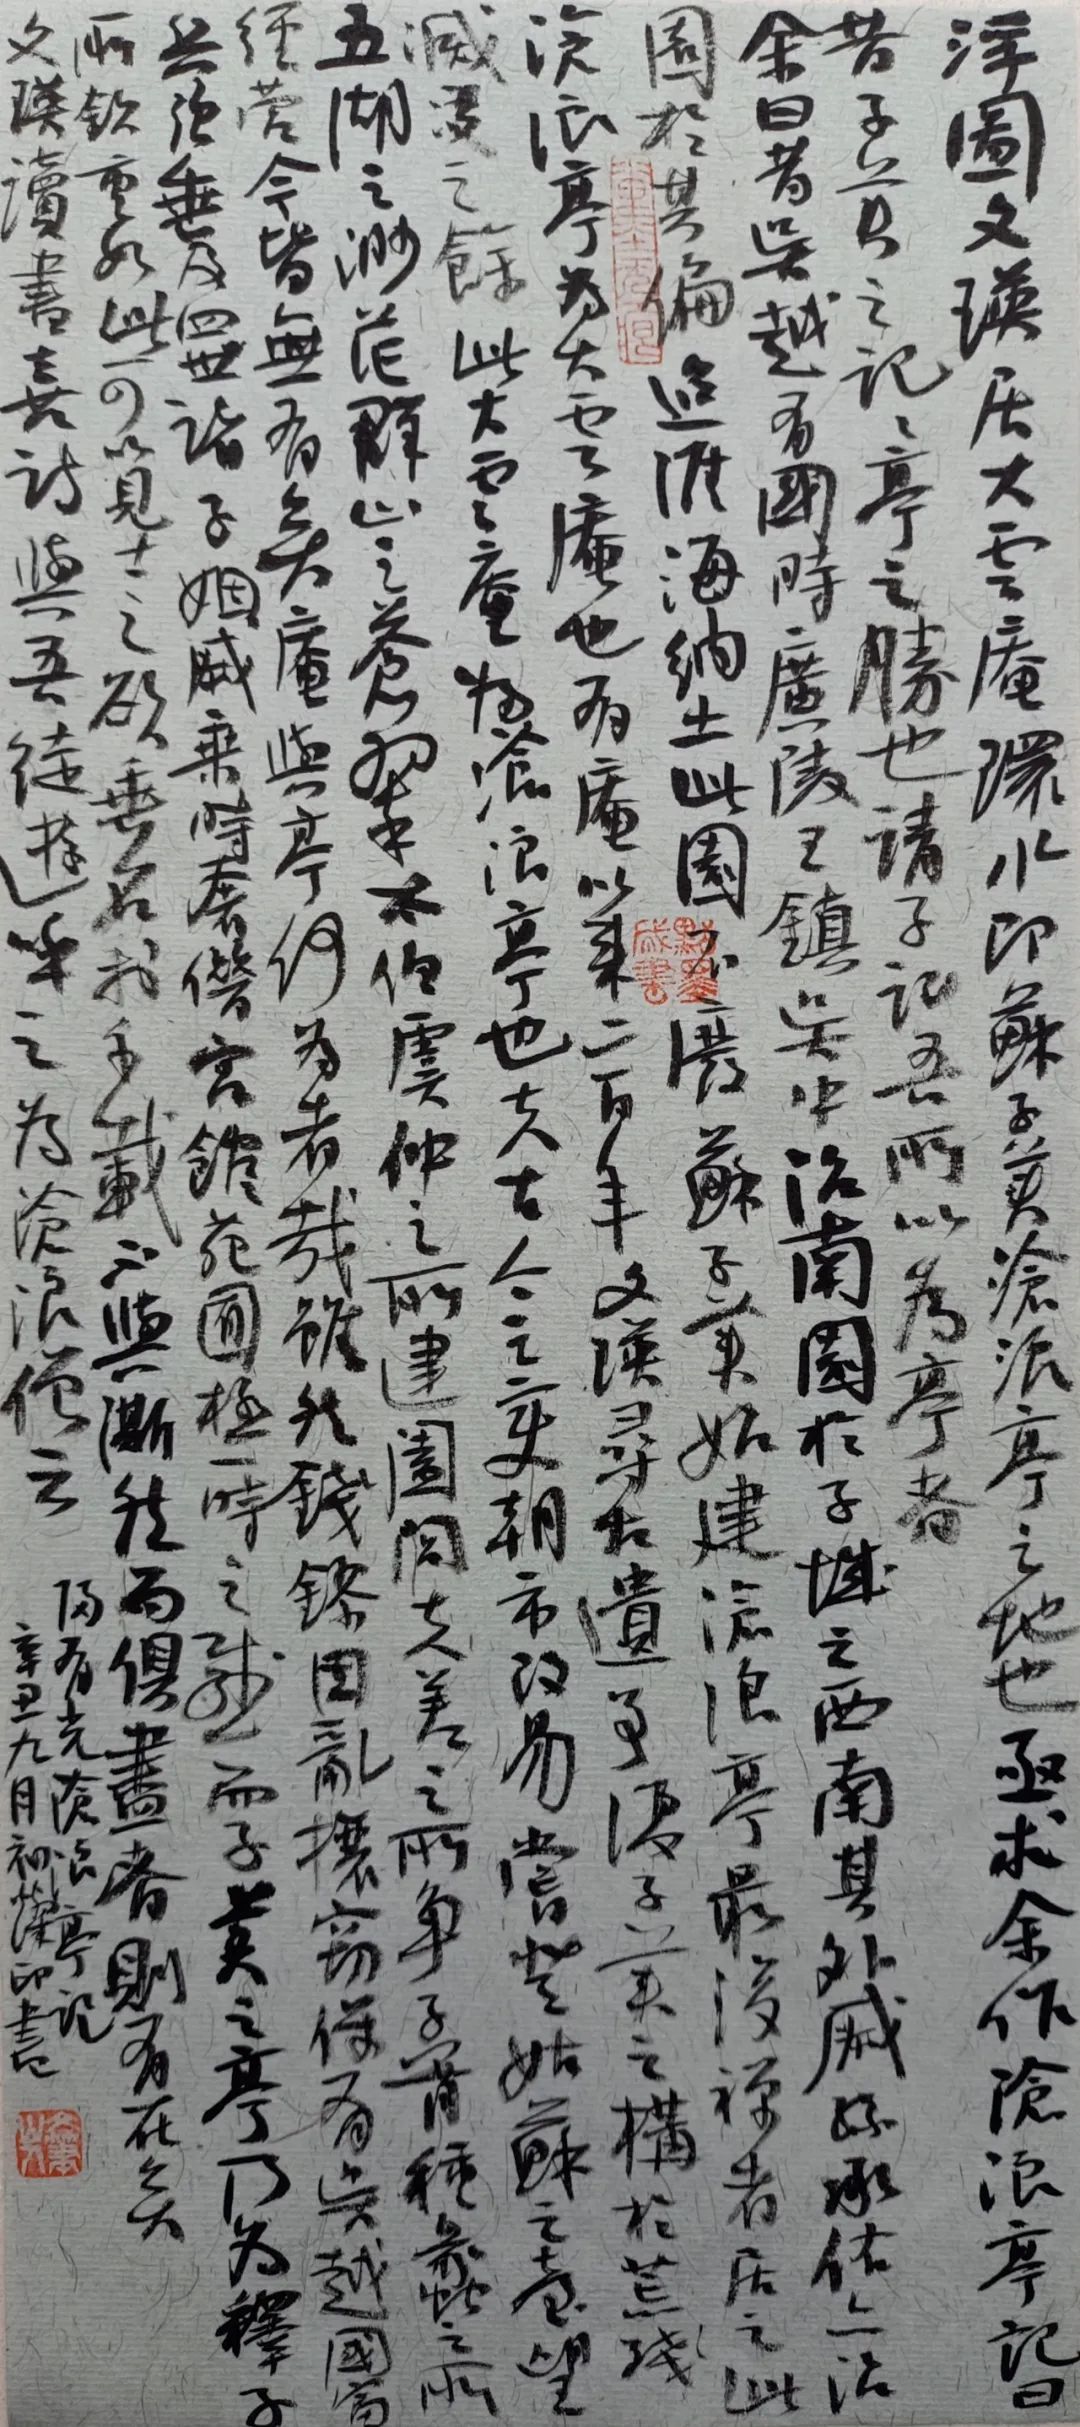 浮圖文瑛居大雲庵環水即蘇子美滄浪亭之地也亟求余作滄浪亭記曰
昔子美之記々亭之勝也請子記吾所以為亭者
余曰昔吳越有國時廣陵王鎮吳中治南園於子城之西南其外戚孫承佑亦治
園於其偏迨淮海納土此園不廢蘇子美始建滄浪亭最後禪者居之此
滄浪亭為大雲庵也有庵以來二百年文瑛尋古遺事復子美之構於荒殘
滅沒之餘此大雲庵為滄浪亭也夫古今之變朝市改易嘗登姑蘇之臺望
五湖之渺茫群山之蒼翠太伯虞仲之所建闔閭夫差之所爭子胥種蠡之所
經營今皆無有矣庵與亭何為者哉雖然錢鏐因亂攘竊保有吳越國富
兵強垂及四世諸子姻戚乘時奢僭宮館苑囿極一時之盛而子美之亭乃為釋子
所欽重如此可以見士之欲垂名於千載不與澌然而俱盡者則有在矣
文瑛讀書喜詩與吾徒遊呼之為滄浪僧云
歸有光滄浪亭記
辛丑九月初燦印書